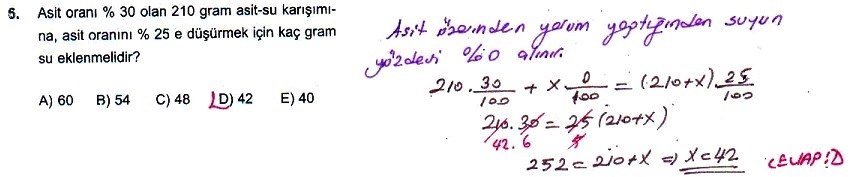 5. Asit oranı % 30 olan 210 gram asit-su karışımı-
na, asit oranını % 25 e düşürmek için kaç gram
su eklenmelidir?
A) 60 B) 54 C) 48 D) 42 E) 40
Asit üzerinden yorum yaptığından suyun
yüzdesi %0 alınır.
210. 30/100 + x. 0/100 = (210+x). 25/100
210.30 = 25(210+x)
42.6 5
252 = 210+x ⇒ x=42 CEVAP:D